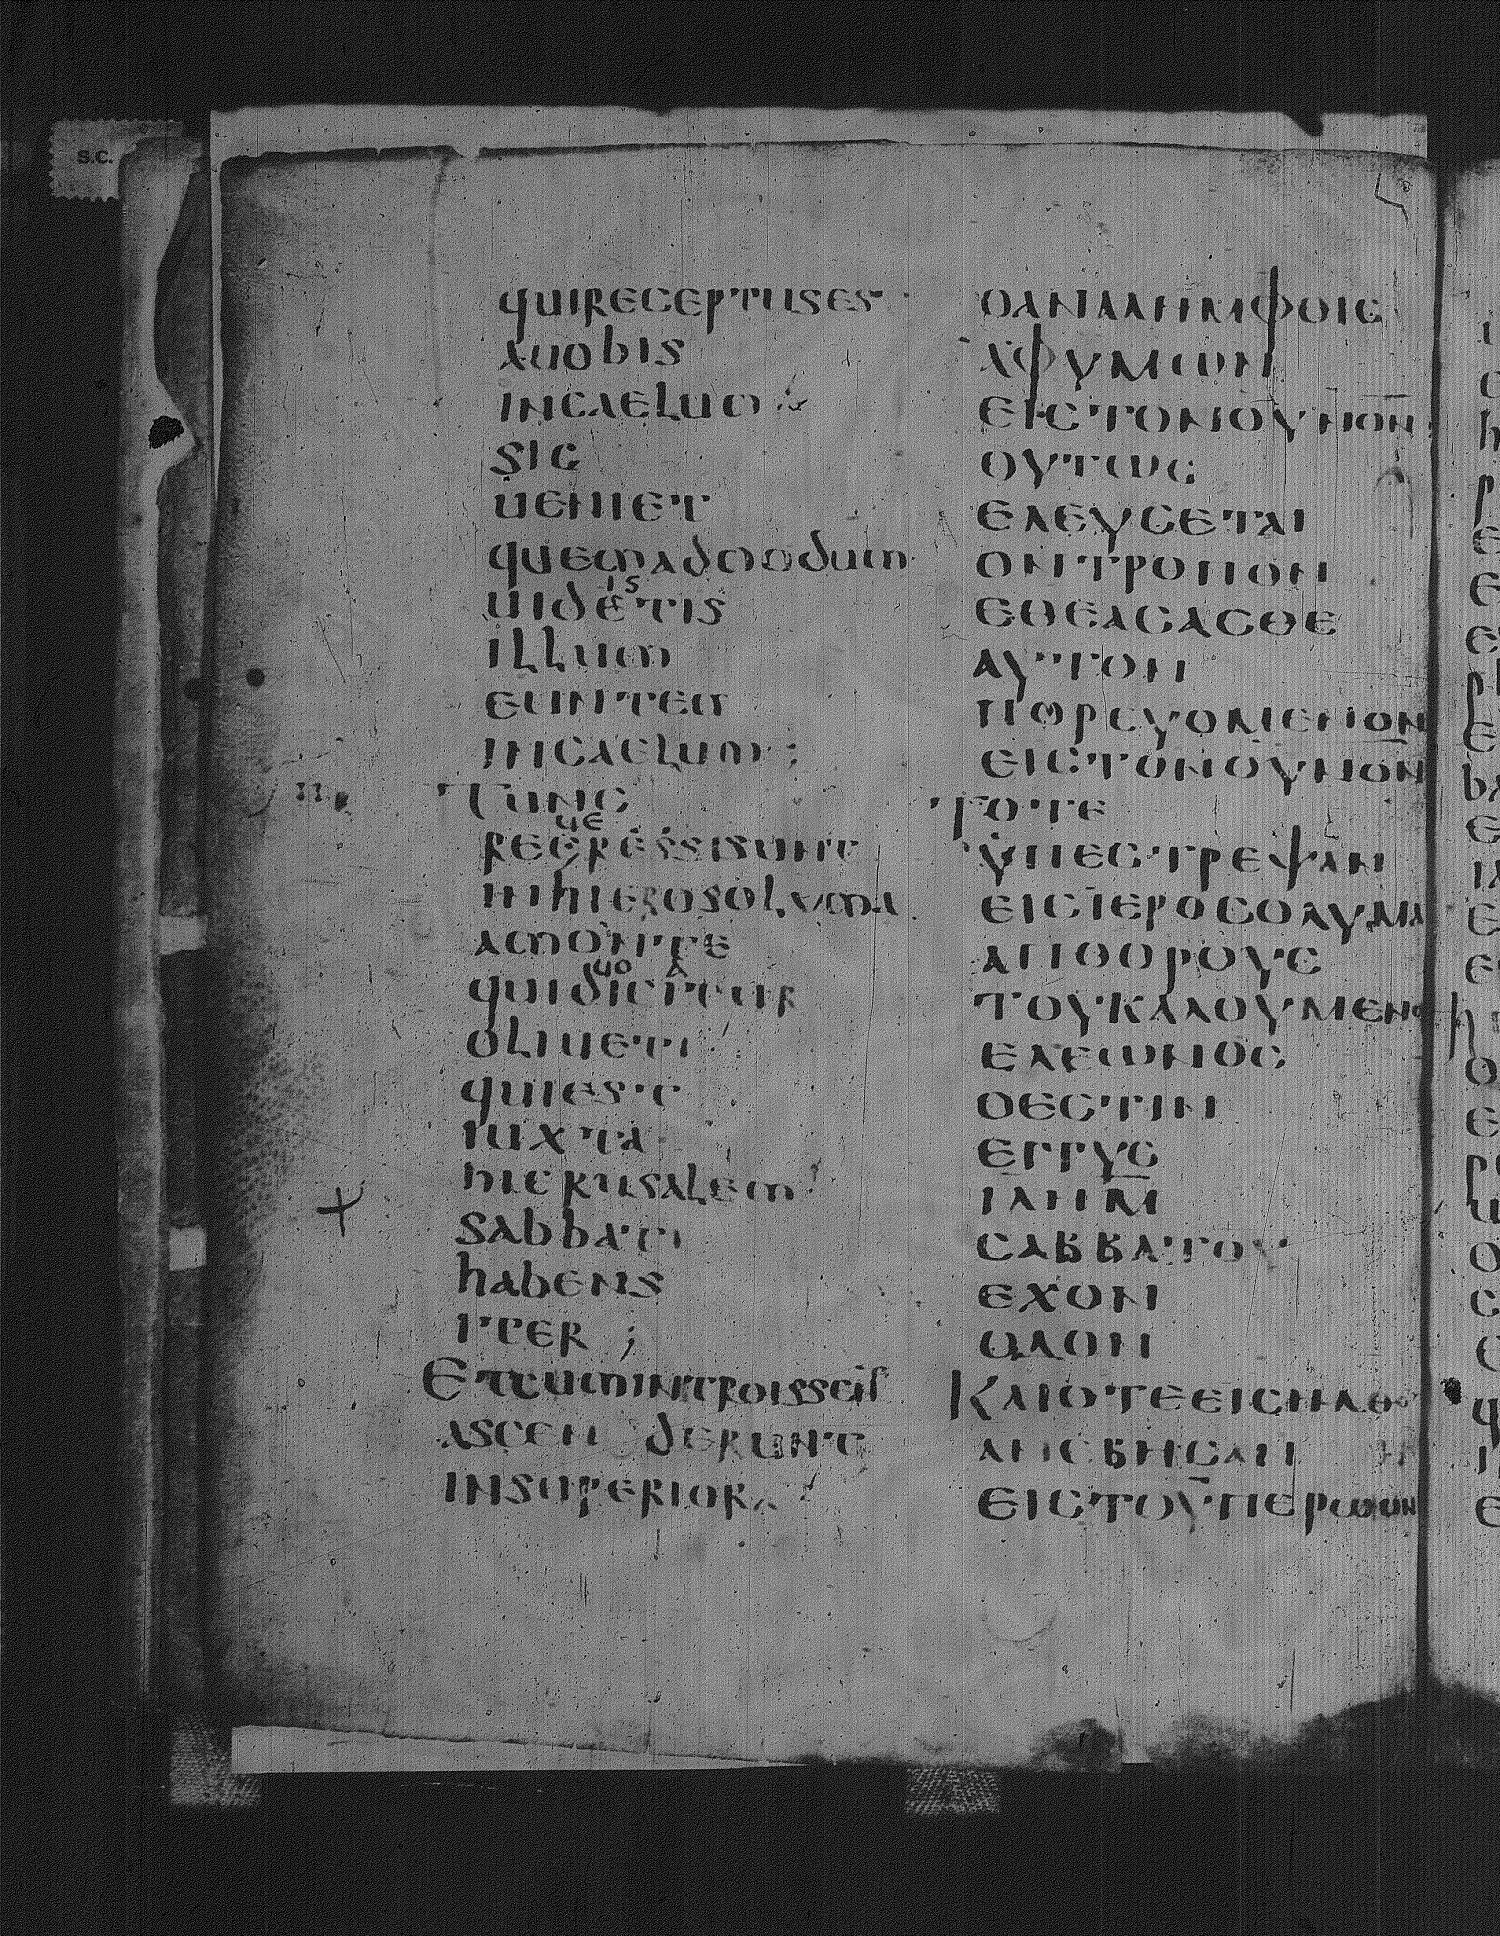 S.C.
quireceptuses
auobis
incaelum
sic
ueniet
quemadmodum
is
uidetis
illum
euntem
incaelum ;
Tunc
ue
regressisunt
inhierosolyma
amonte
uo a
quidicitur
oliueti
quiest
iuxta
hierusalem
sabbati
habens
iter ;
Etcumintroissent
ascenderunt
insuperiora
ΟΑΝΑΛΗΜΦΟΙϹ
ΑΦΥΜΩΝ
ΕΙϹΤΟΝΟΥΝΟΝ
ΟΥΤΩϹ
ΕΛΕΥϹΕΤΑΙ
ΟΝΤΡΟΠΟΝ
ΕΘΕΑϹΑϹΘΕ
ΑΥΤΟΝ
ΠΟΡΕΥΟΜΕΝΟΝ
ΕΙϹΤΟΝΟΥΝΟΝ
ΤΟΤΕ
ΥΠΕϹΤΡΕΨΑΝ
ΕΙϹΙΕΡΟϹΟΛΥΜΑ
ΑΠΟΟΡΟΥϹ
ΤΟΥΚΑΛΟΥΜΕΝΟ
ΕΛΕΩΝΟϹ
ΟΕϹΤΙΝ
ΕΓΓΥϹ
ΙΛΗΜ
ϹΑΒΒΑΤΟΥ
ΕΧΟΝ
ΟΔΟΝ
ΚΑΙΟΤΕΕΙϹΗΛΘΟ
ΑΝΕΒΗϹΑΝ
ΕΙϹΤΟΥΠΕΡΩΟΝ